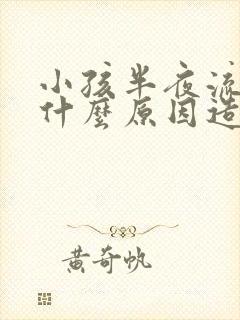 小孩半夜流
什麼原因造
黄奇帆